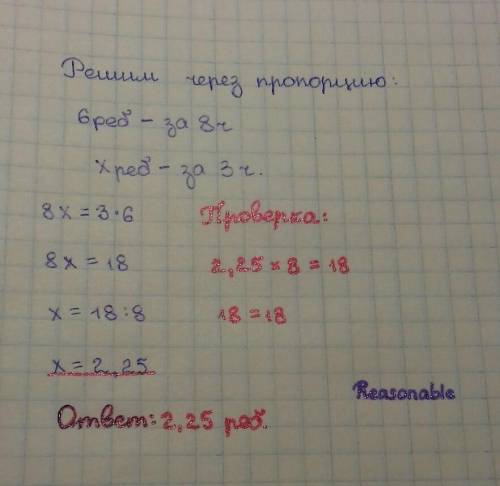 Решим через пропорцию:
6реб – за 8ч
х реб – за 3ч.
8х = 3·6
8х = 18
х = 18:8
х = 2,25
Проверка:
2,25 × 8 = 18
18 = 18
Ответ: 2,25 реб.
Reasonable